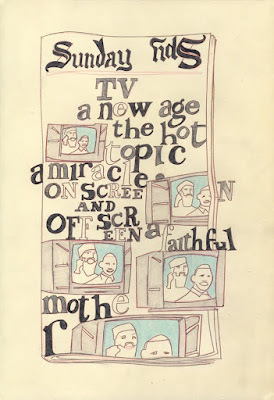 Sunday
TV
a new age
the hot
topic
a miracle:
ON SCREEN
AND
OFF SCR
EEN a
faithful
mothe
r